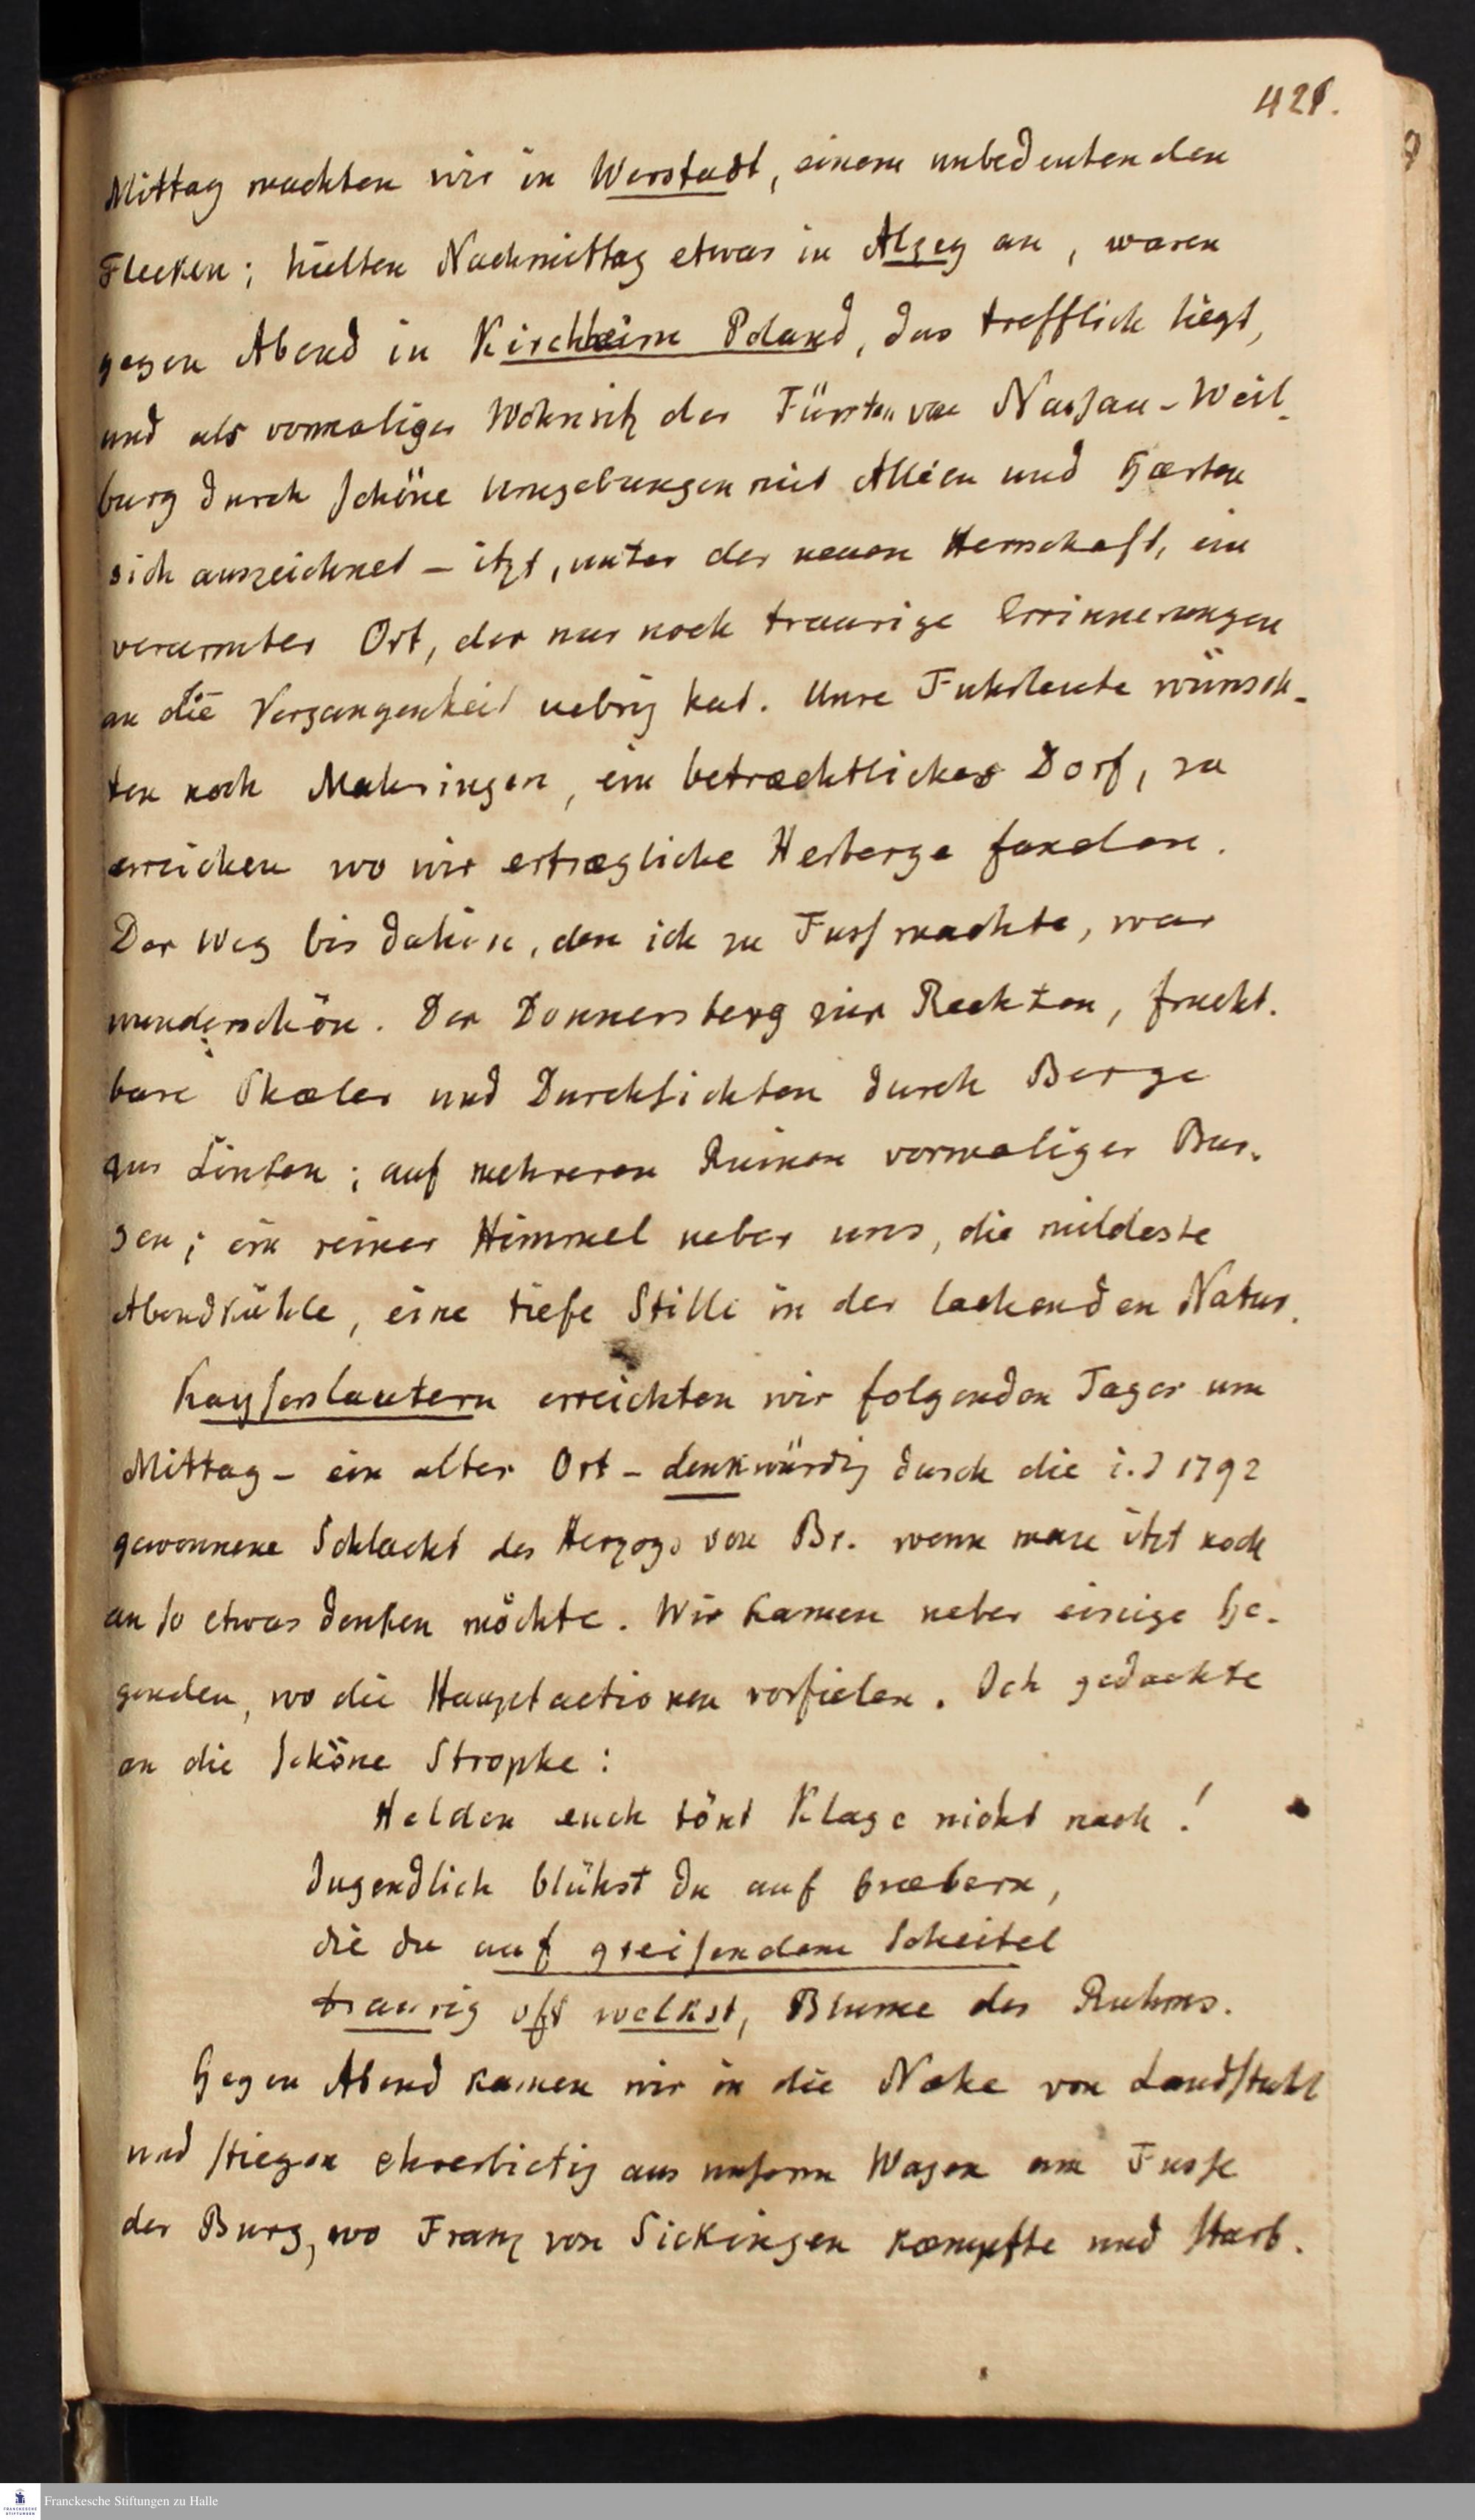 421.
Mittag machten wir in Worstadt, einem unbedeutenden
Flecken; hielten Nachmittag etwas in Alzey an, waren
gegen Abend in Kirchheim Poland, das trefflich liegt,
und als vormaliger Wohnsitz des Fürsten von Nassau-Weil-
burg durch schöne Umgebungen mit Alléen und Gærten
sich auszeichnet – itzt, unter der neuen Herrschaft, ein
verarmter Ort, der nur noch traurige Errinnerungen
an die Vergangenheit uebrig hat. Unsre Fuhrleute wünsch-
ten noch Mahringen, ein betræchtliches Dorf, zu
erreichen wo wir ertrægliche Herberge fanden.
Der Weg bis dahin, den ich zu Fuss machte, war
wunderschön. Der Donnersberg zur Rechten, frucht-
bare Thæler und Durchsichten durch Berge
zur Linken; auf mehreren Ruinen vormaliger Bur-
gen; ein reiner Himmel ueber uns, die mildeste
Abendkühle, eine tiefe Stille in der lachenden Natur.
Kayserslautern erreichten wir folgenden Tages um
Mittag – ein alter Ort – denkwürdig durch die i. J 1792
gewonnene Schlacht des Herzogs von Br. wenn man itzt noch
an so etwas denken möchte. Wir kamen ueber einige Ge-
genden, wo die Hauptactionen vorfielen. Ich gedachte
an die schöne Strophe:
Helden euch tönt Klage nicht nach!
Jugendlich blühst du auf Græbern,
die du auf greisendem Scheitel
traurig oft welkst, Blume des Ruhms.
Gegen Abend kamen wir in die Næhe von Landstuhl
und stiegen ehrerbietig aus unserm Wagen am Fusse
der Burg, wo Franz von Sickingen kæmpfte und starb.
Franckesche Stiftungen zu Halle
FRANCKESCHE
STIFTUNGEN